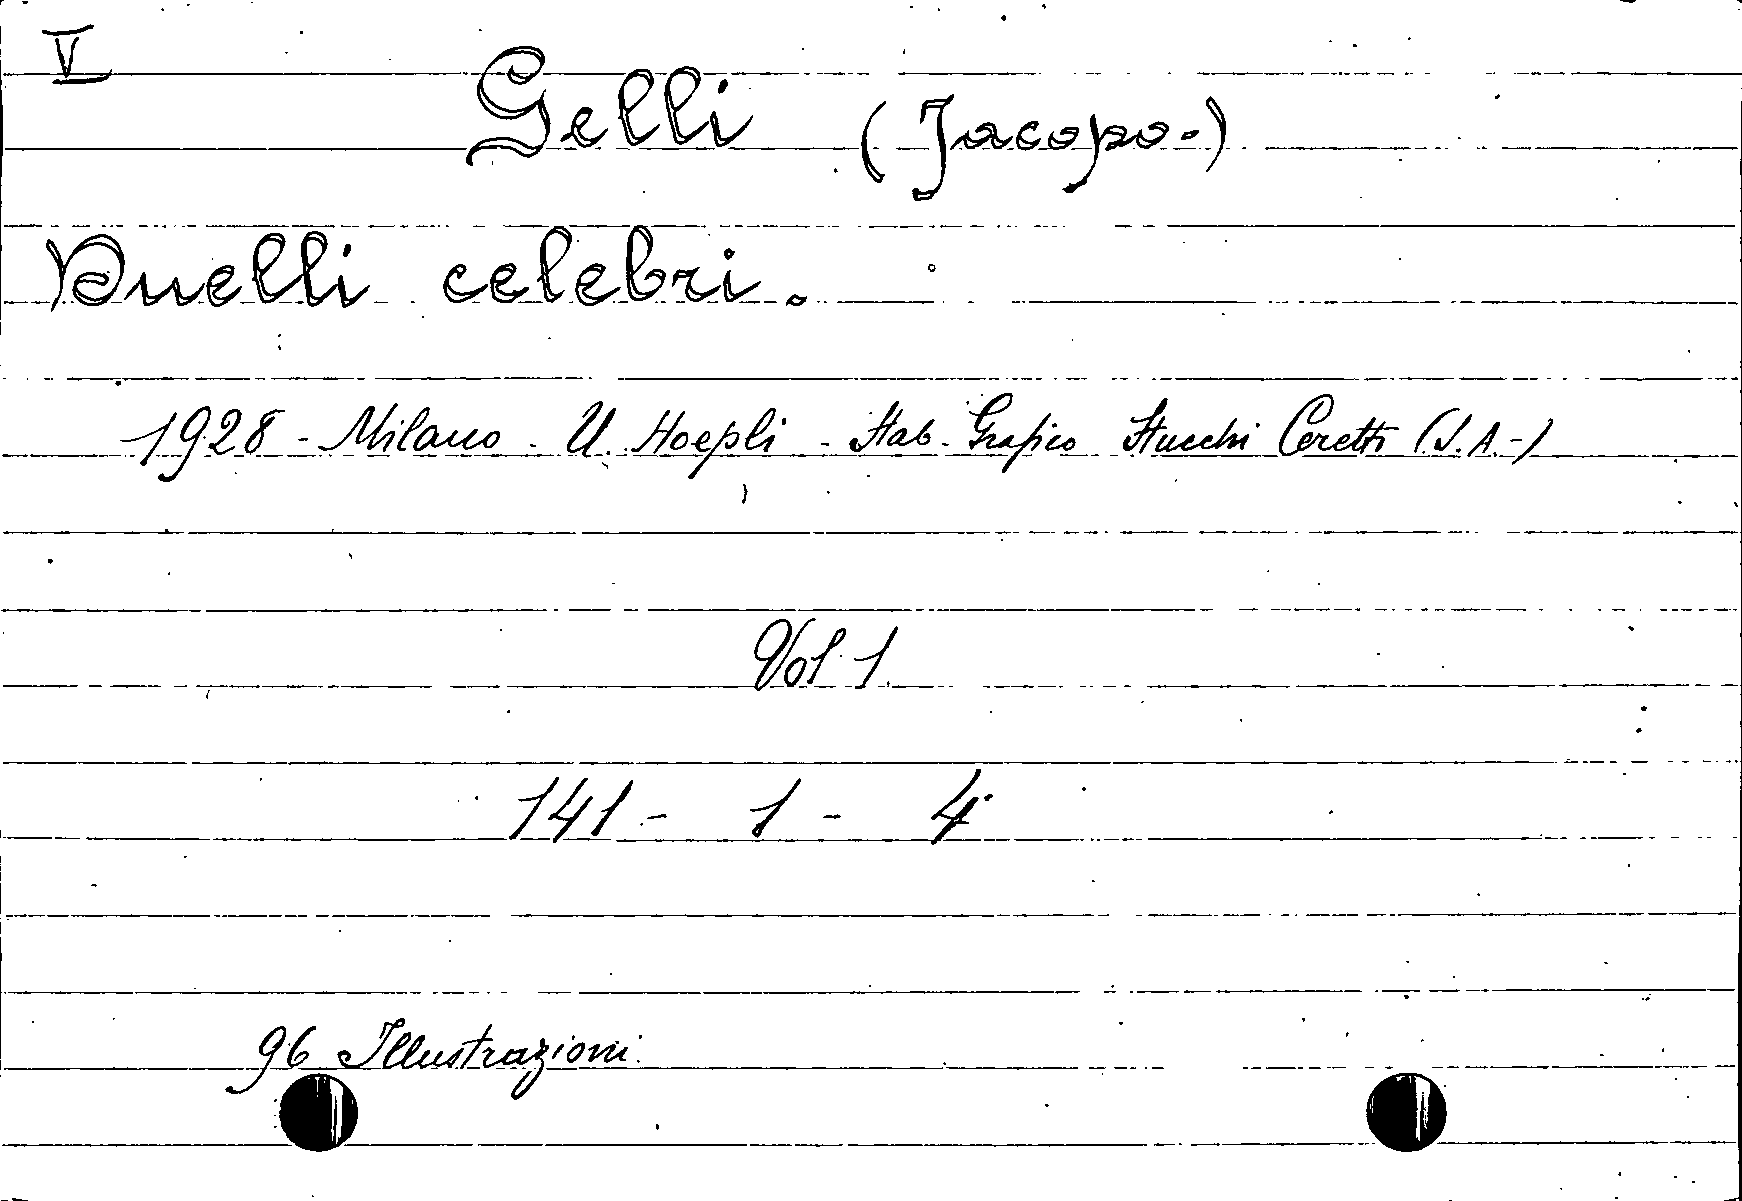 V
Gelli (Jacopo-)
Duelli celebri.
1928 - Milano - U. Hoepli - Stab. Grafico Stucchi Ceretti (S.A.-)
Vol 1.
141 - 1 - 4
96 Illustrazioni.